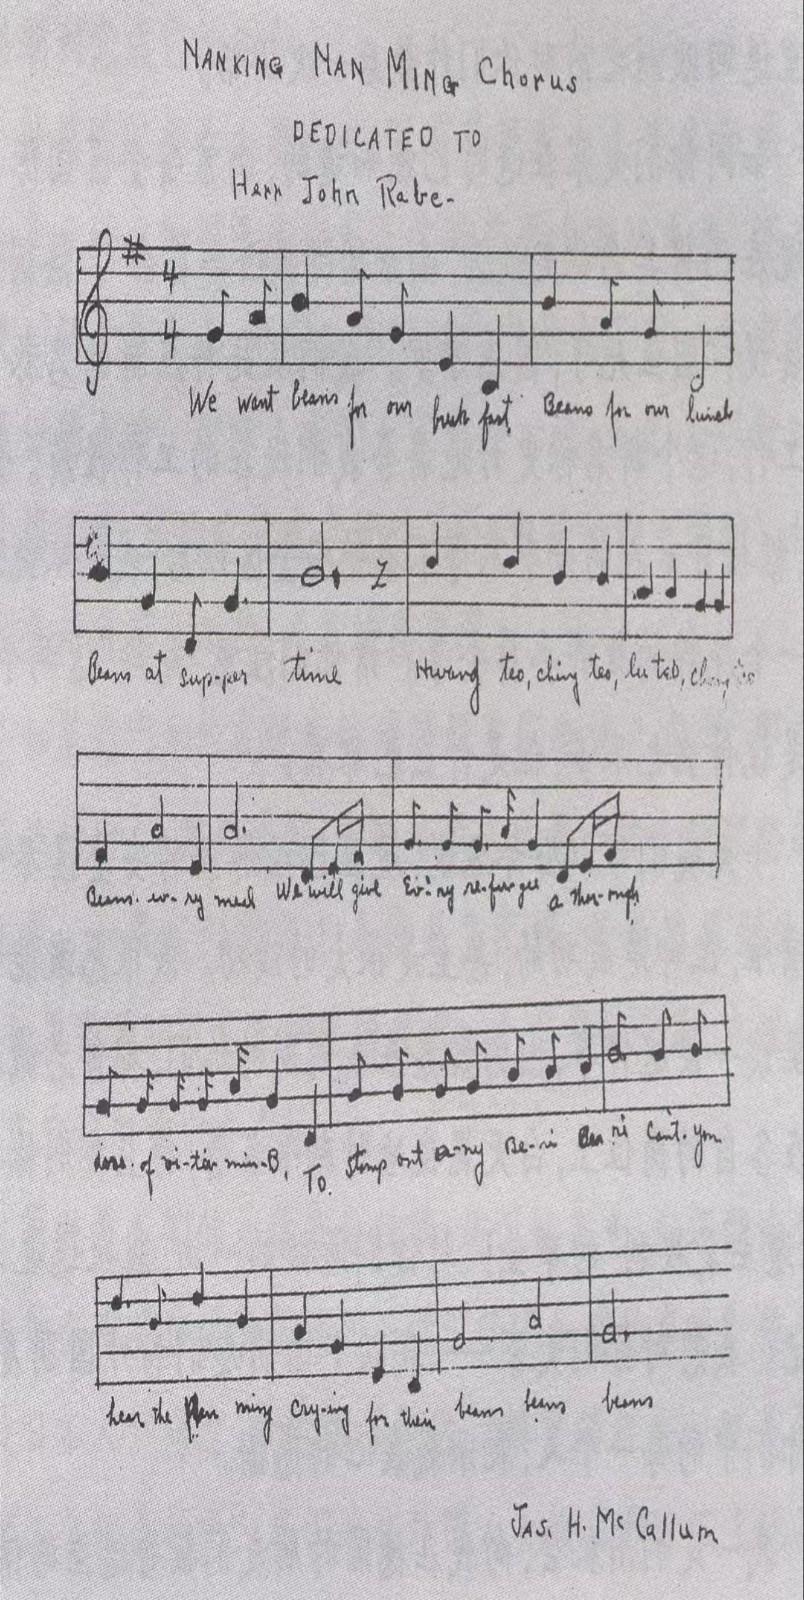 NANKING NAN MING Chorus
DEDICATED TO
Herr John Rabe-
4
4
We want beans for our break fast. Beans for our lunch
Beans at sup-per time Hwang teo, ching teo, lu teo,
Beans. ev-ry meal We will give Ev'-ry re-fu-gee a thor-ough
dose of vi-ta-min-B, To. Stamp out a-ny Be-ri Be-ri Can't. you
hear the Nan ming cry-ing for their beans beans beans
JAS. H. Mc Callum